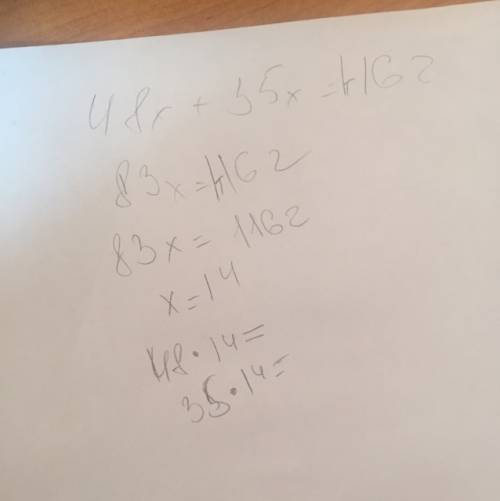 48x + 35x = 1162
83x = 1162
83x = 1162
x = 14
48 · 14 =
35 · 14 =